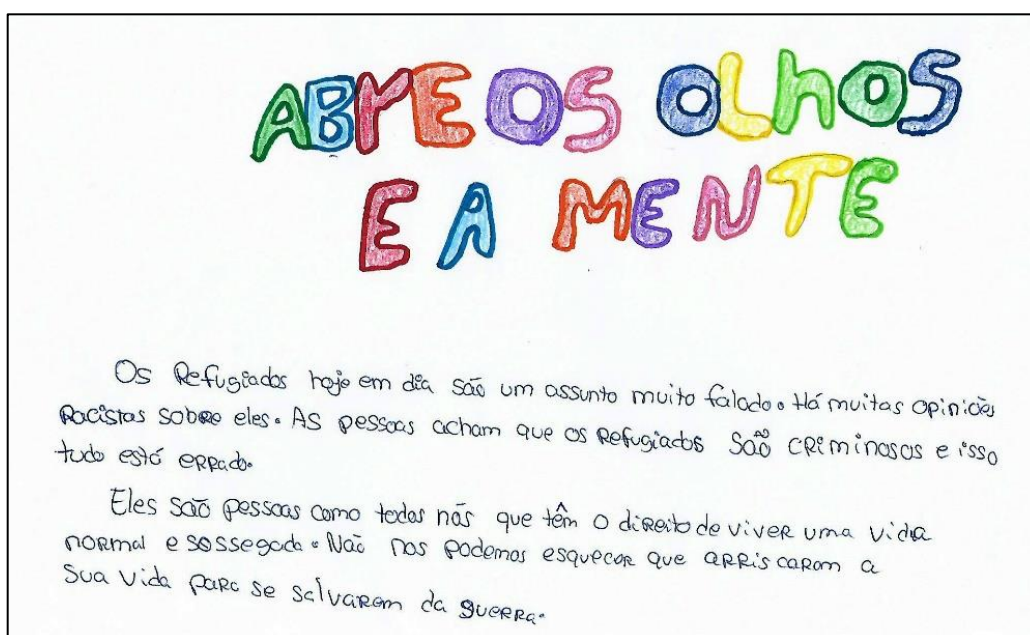 ABrE OS OLhOS
E A MENTE
Os Refugiados hoje em dia são um assunto muito falado. Há muitas opiniões
Racistas sobre eles. As pessoas acham que os Refugiados são criminosos e isso
tudo está errado.
Eles são pessoas como todos nós que têm o direito de viver uma vida
normal e sossegada. Não nos podemos esquecer que arriscaram a
sua vida para se salvarem da guerra.